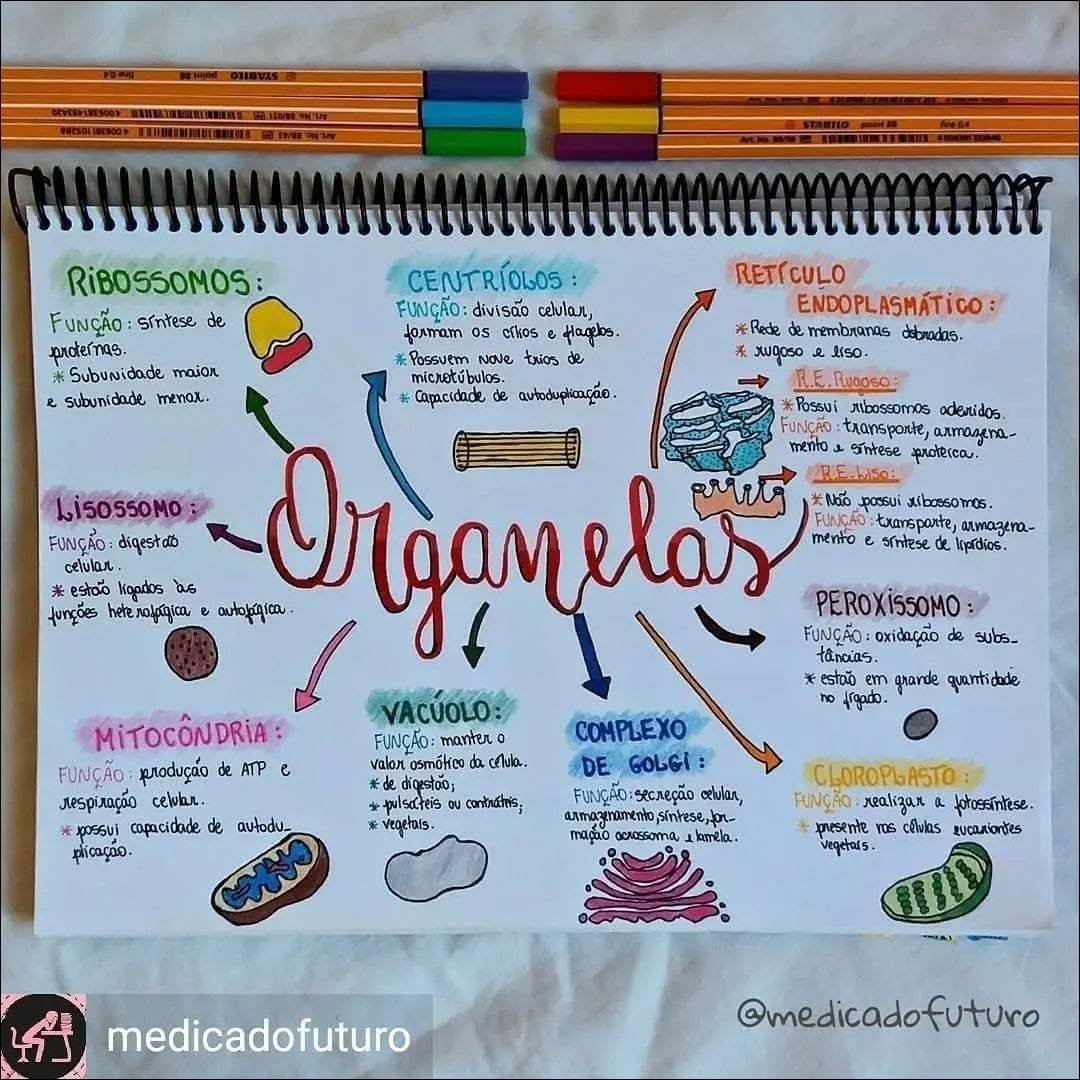 fine 0.4 point 88 STABILO
4 006381493420 Art. No. 88/031
4 006381105286 Art. No. 88/43
STABILO point 88 fine 0.4
Art. No.
RIBOSSOMOS:
FUNÇÃO: síntese de
proteínas.
* Subunidade maior
e subunidade menor.
CENTRÍOLOS:
FUNÇÃO: divisão celular,
formam os cílios e flagelos.
* Possuem nove trios de
microtúbulos.
* Capacidade de autoduplicação.
RETÍCULO
ENDOPLASMÁTICO:
* Rede de membranas dobradas.
* rugoso e liso.
R.E. Rugoso:
* Possui ribossomos aderidos.
FUNÇÃO: transporte, armazena-
mento e síntese proteica.
R.E. Liso:
* Não possui ribossomos.
FUNÇÃO: transporte, armazena-
mento e síntese de lipídios.
Organelas
LISOSSOMO:
FUNÇÃO: digestão
celular.
* estão ligados às
funções heterofágica e autofágica.
PEROXISSOMO:
FUNÇÃO: oxidação de subs-
tâncias.
* estão em grande quantidade
no fígado.
MITOCÔNDRIA:
FUNÇÃO: produção de ATP e
respiração celular.
* possui capacidade de autodu-
plicação.
VACÚOLO:
FUNÇÃO: manter o
valor osmótico da célula.
* de digestão;
* pulsáteis ou contráteis;
* vegetais.
COMPLEXO
DE GOLGI:
FUNÇÃO: secreção celular,
armagnamento, síntese, for-
mação acrossoma e lamela.
CLOROPLASTO:
FUNÇÃO: realizar a fotossíntese.
* presente nas células eucariontes
vegetais.
medicadofuturo
@medicadofuturo